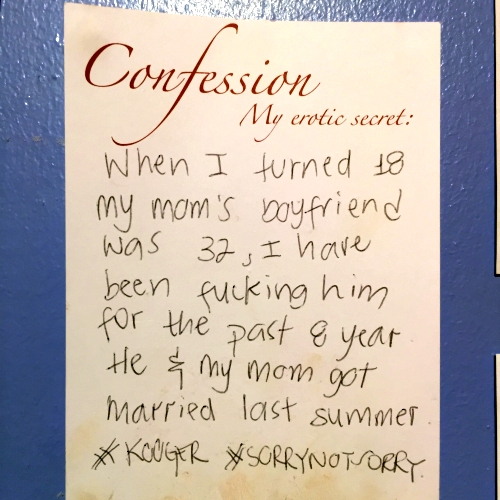 Confession
My erotic secret:
When I turned 18
my mom's boyfriend
was 32, I have
been fucking him
for the past 8 year
He & my mom got
married last summer
# KOUGER #SORRYNOTSORRY